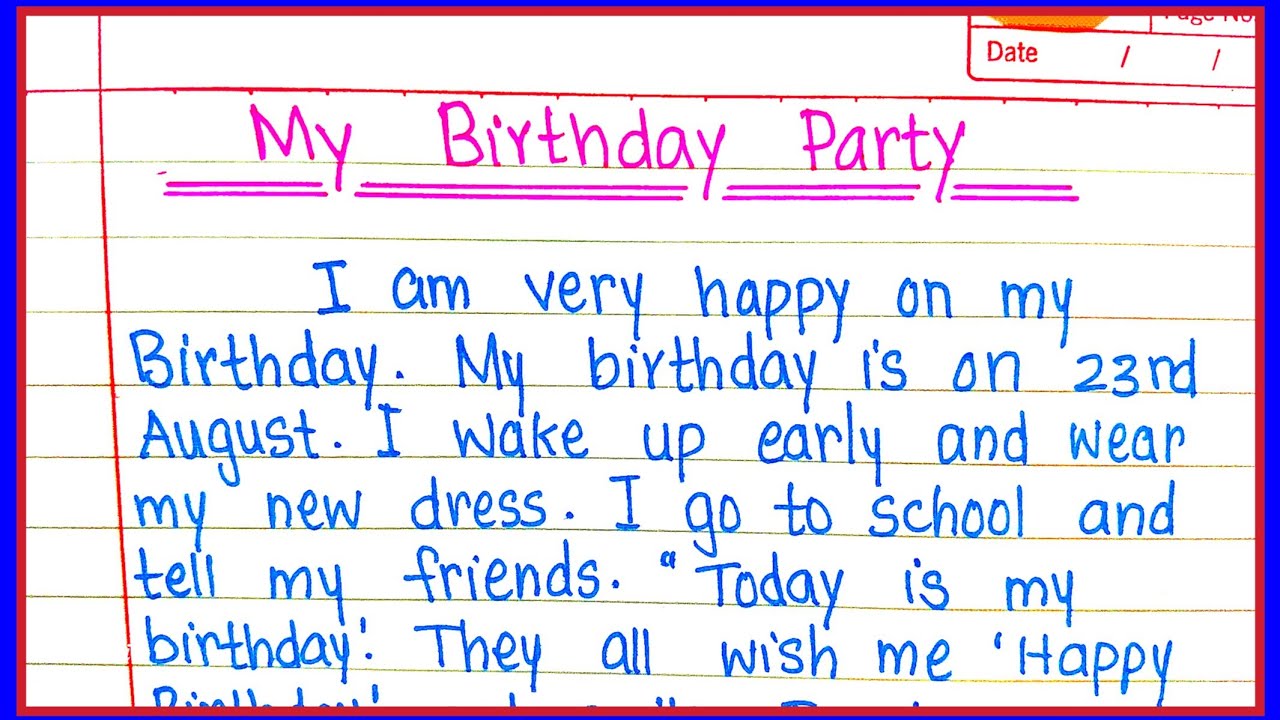 Page No.
Date / /
My Birthday Party
I am very happy on my
Birthday. My birthday is on 23rd
August. I wake up early and wear
my new dress. I go to school and
tell my friends. "Today is my
birthday'. They all wish me 'Happy
Birthday'